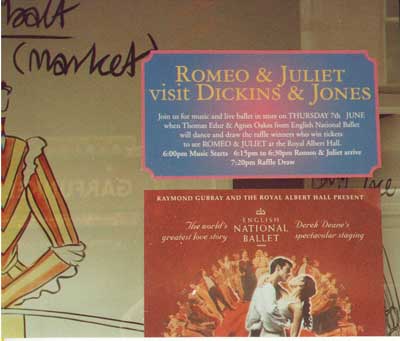 (market)
ROMEO & JULIET
visit DICKINS & JONES
Join us for music and live ballet in store on THURSDAY 7th JUNE
when Thomas Edur & Agnes Oakes from English National Ballet
will dance and draw the raffle winners who win tickets
to see ROMEO & JULIET at the Royal Albert Hall.
6:00pm Music Starts 6:15pm to 6:30pm Romeo & Juliet arrive
7:20pm Raffle Draw
RAYMOND GUBBAY AND THE ROYAL ALBERT HALL PRESENT
ENGLISH
NATIONAL
BALLET
The world's
greatest love story
Derek Deane's
spectacular staging